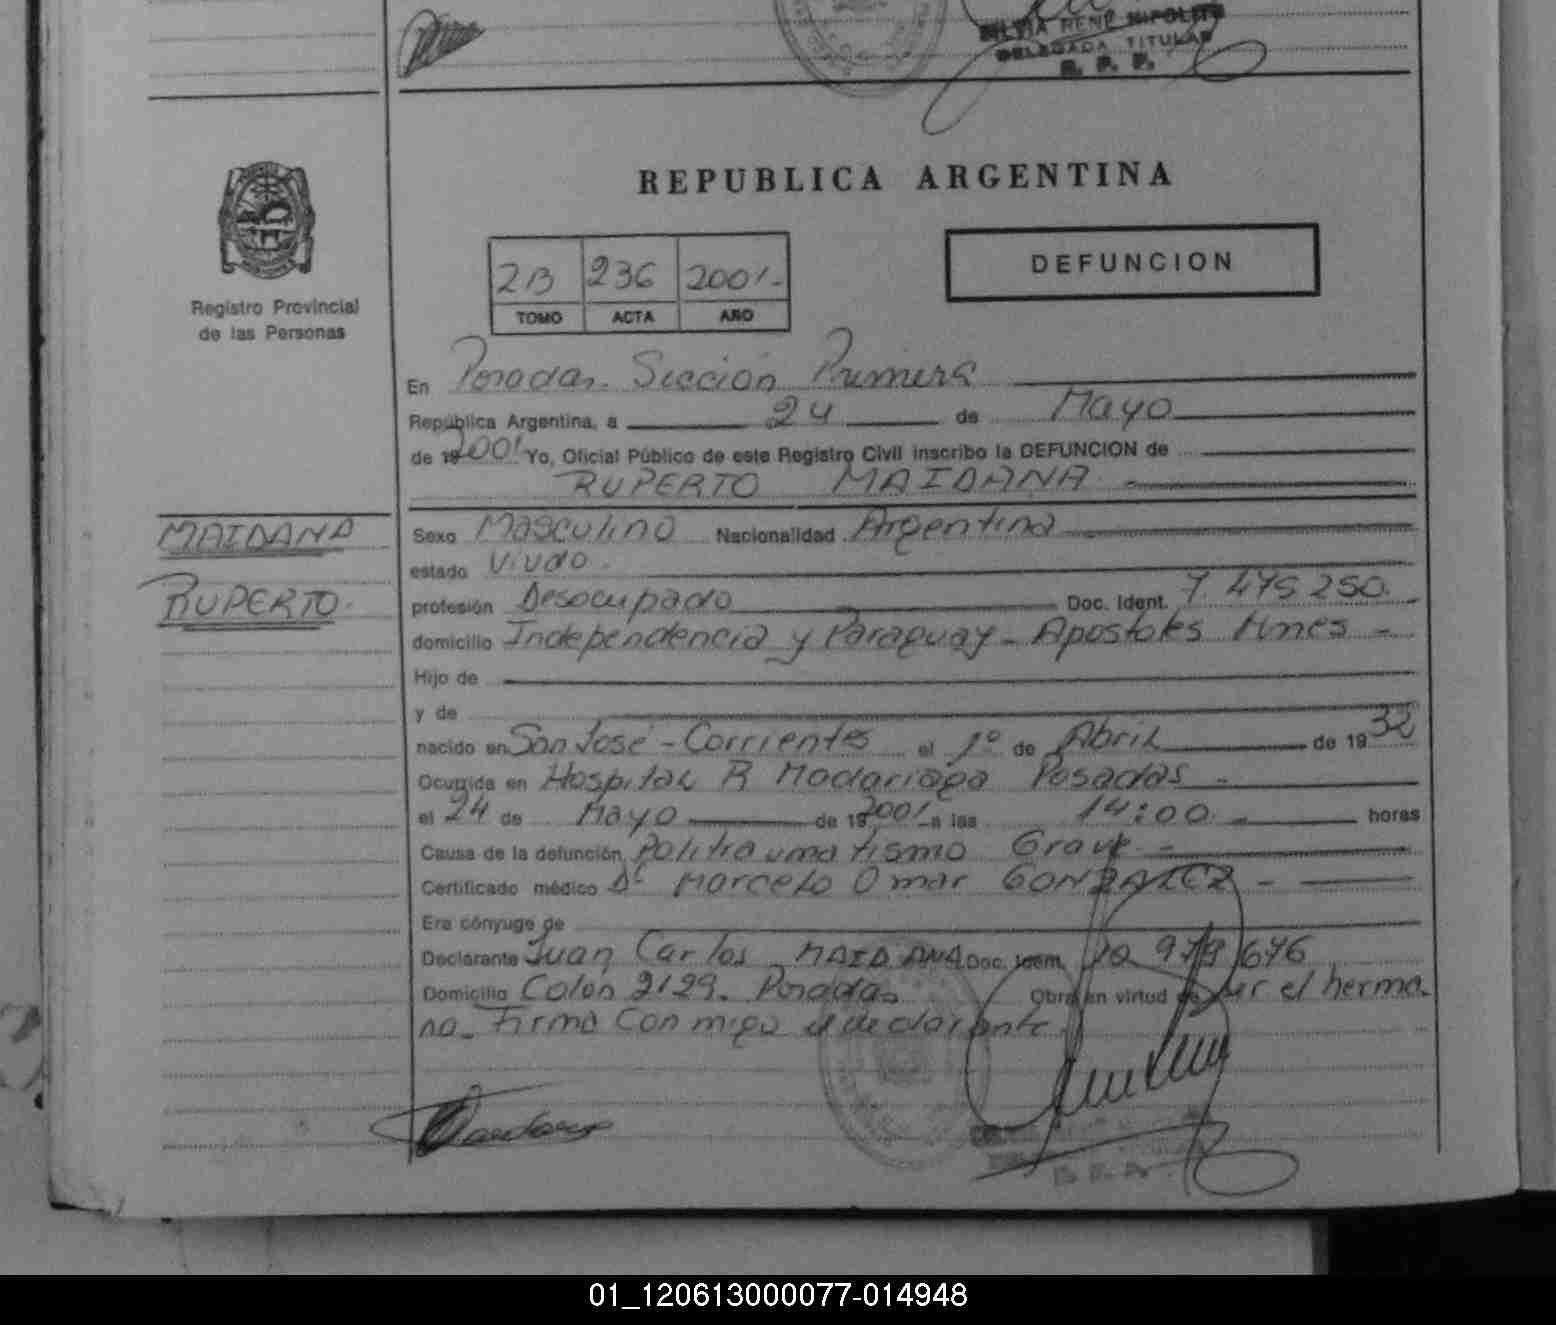 SILVIA RENE HIPOLITO
DELEGADA TITULAR
R. P. P.
REPUBLICA ARGENTINA
Registro Provincial
de las Personas
2B 236 2001.-
TOMO ACTA AÑO
DEFUNCION
En Posadas. Sección Primera
República Argentina, a 24 de Mayo
de 19 2001 Yo, Oficial Público de este Registro Civil inscribo la DEFUNCION de
RUPERTO MAIDANA -
MAIDANA
RUPERTO.
Sexo Masculino Nacionalidad Argentina
estado Viudo.
profesión Desocupado Doc. Ident. 7.475.250.
domicilio Independencia y Paraguay - Apostoles Mnes -
Hijo de
y de
nacido en San José - Corrientes el 1º de Abril de 19 32
Ocurrida en Hospital R Madariaga Posadas -
el 24 de Mayo de 19 2001 a las 14:00 horas
Causa de la defunción Politraumatismo Grave -
Certificado médico Dr Marcelo Omar GONZALEZ -
Era cónyuge de
Declarante Juan Carlos MAIDANA Doc. Ident. 979 676
Domicilio Colón 2129. Posadas Obra en virtud de ser el herma-
no. Firma Conmigo el declarante
R. P. P.
01_120613000077-014948